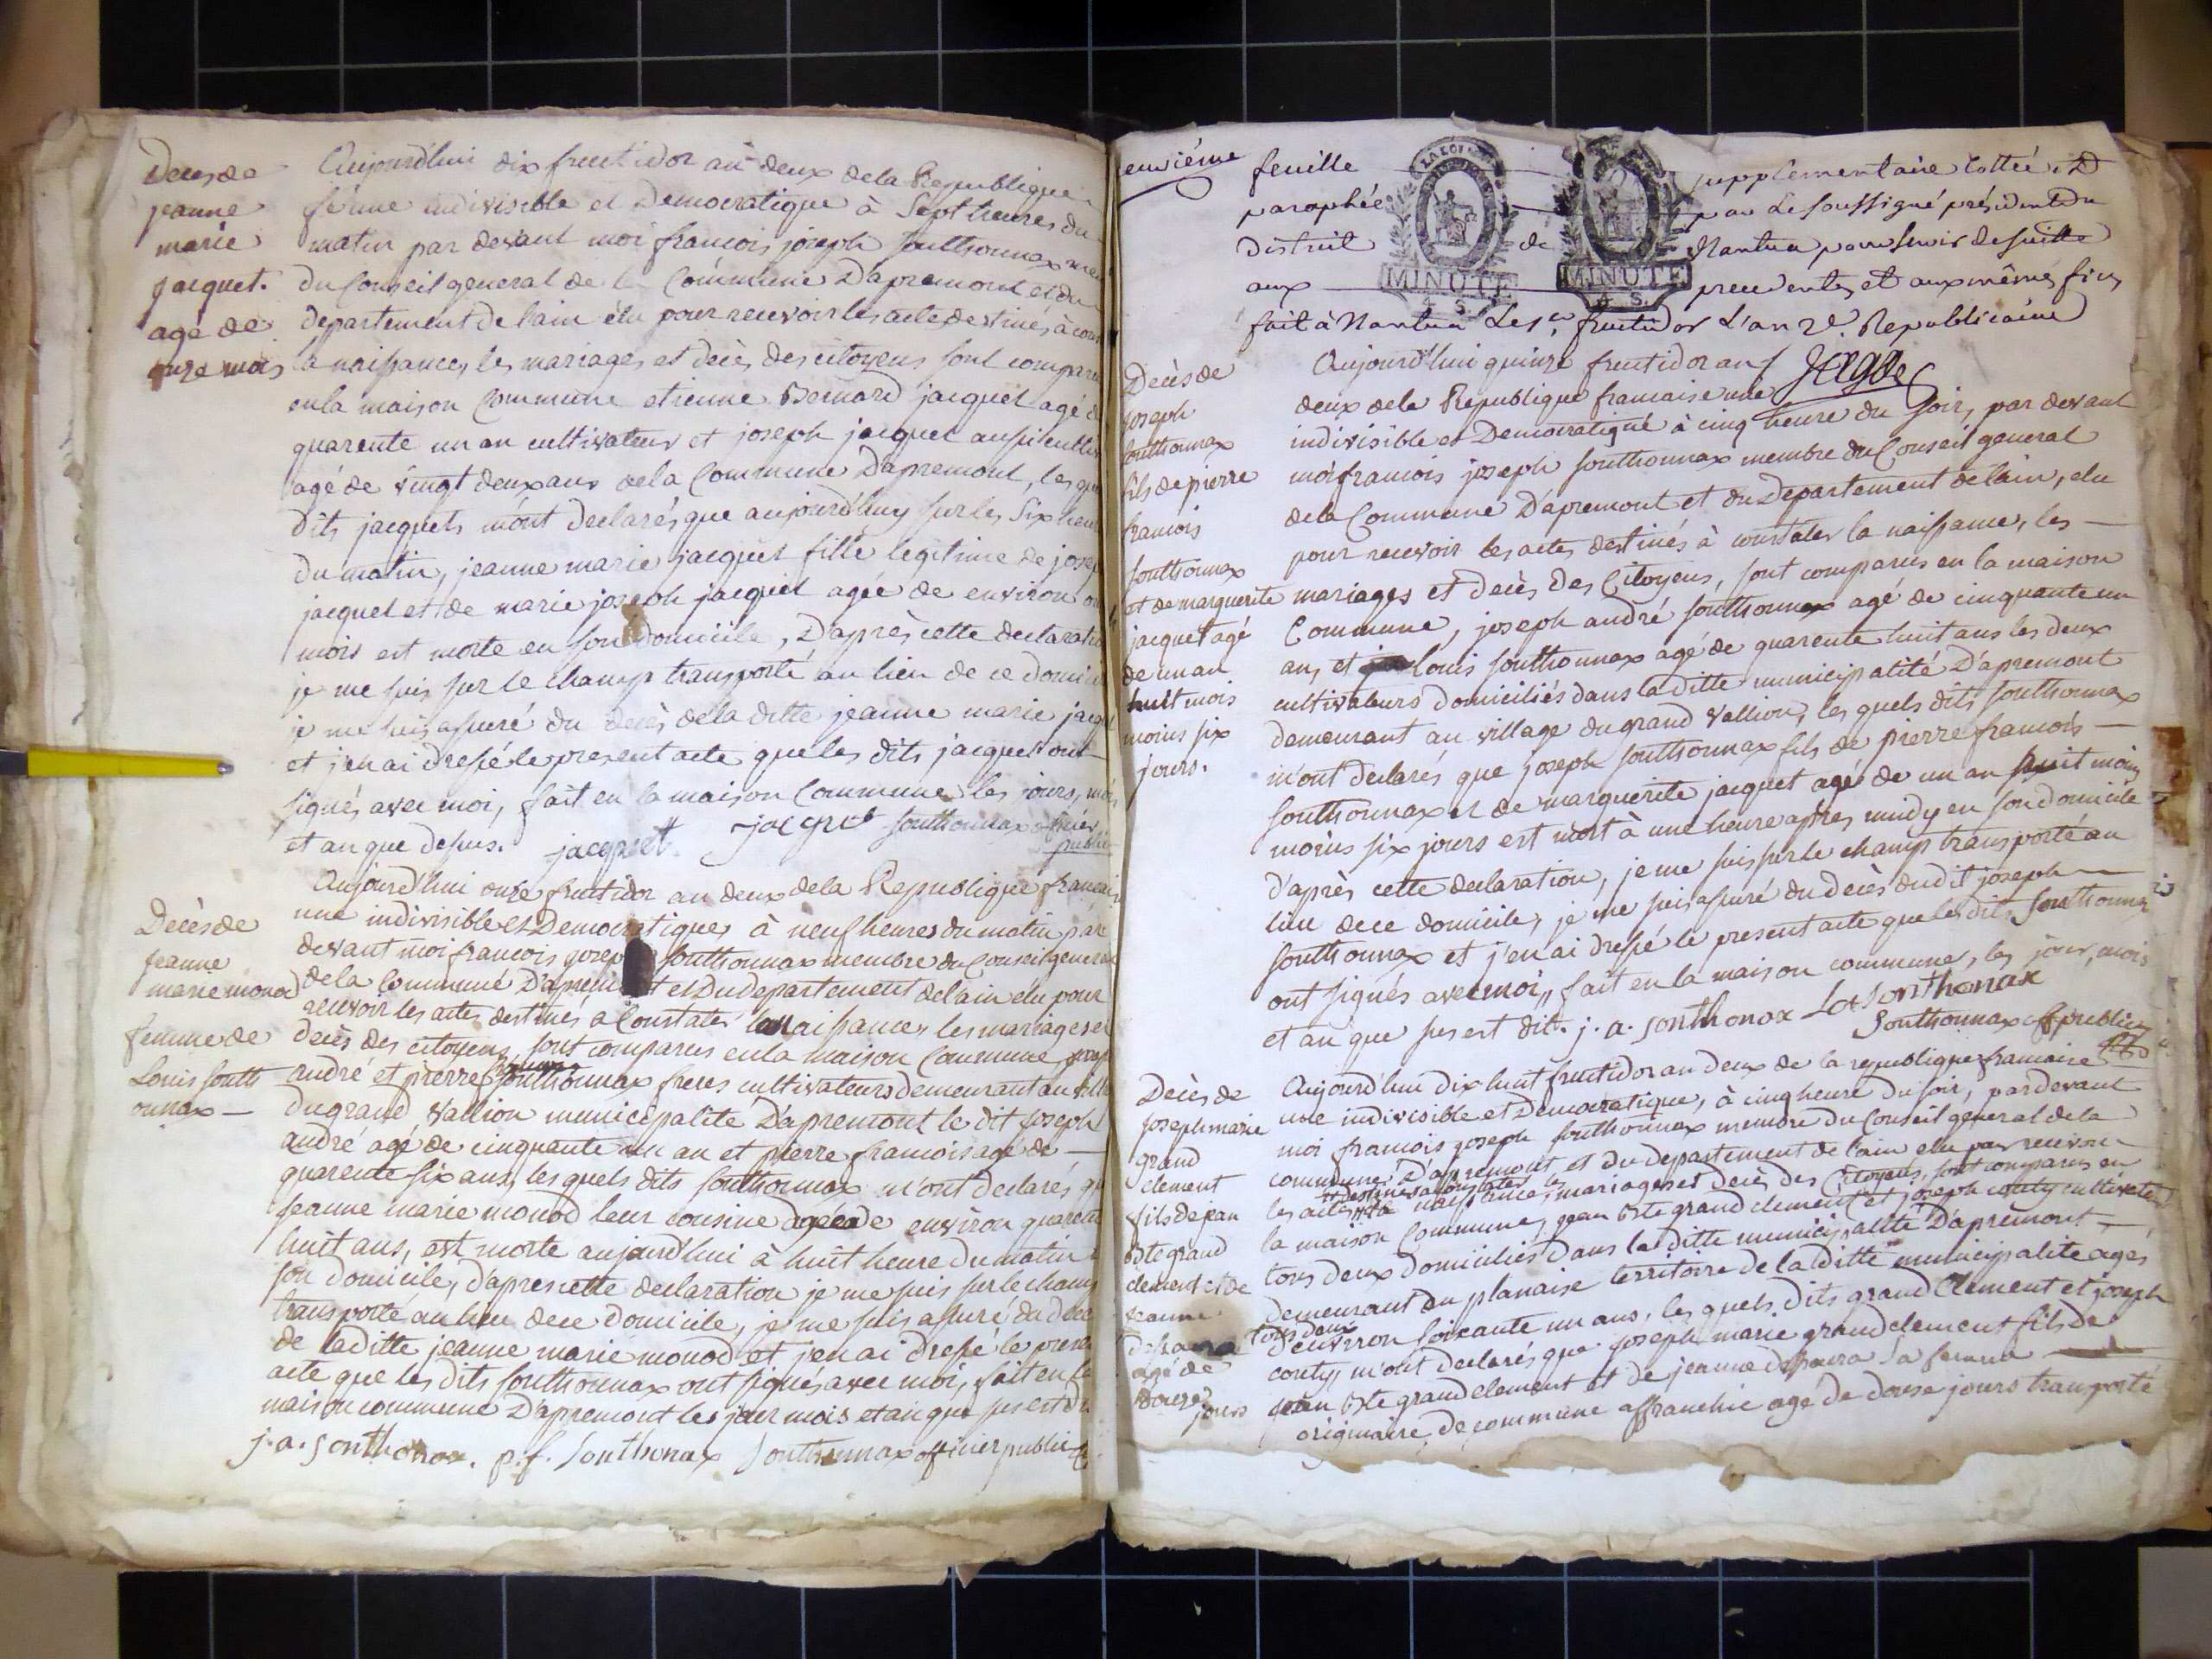 Deces de
jeanne
marie
jacquet.
agé de
onze mois
Aujourd'hui dix fructidor an deux de la Republique
une indivisible et Democratique à Sept heures du
matin par devant moi francois joseph southonnax
du Conseil general de la Commune D'apremont et du
departement de l'ain élu pour recevoir les acte destinés à
la naissance, les mariages et decès des citoyens sont
en la maison Commune etienne Bernard jacquet agé
quarente un an cultivateur et joseph jacquet aussi
agé de vingt deux ans de la Commune D'apremont, les
dits jacquets m'ont declarés que aujourd'huy sur les Six
du matin, jeanne marie jacquet fille legitime de
jacquet et de marie joseph jacquet agée de environ
mois est morte en son domicile, D'après cette
je me suis sur le champ transporté au lieu de ce
je me suis assuré du decès de la ditte jeanne marie
et j'en ai dressé le present acte que les dits jacquet ont
signés avec moi, fait en la maison Commune les jours,
et an que dessus. jacquet jacquet southonnax officier
public
Decès de
jeanne
marie monod
femme de
Louis south
onnax —
Aujourd'hui onze fructidor an deux de la Republique
une indivisible et Democratique, à neuf heures du matin par
devant moi francois southonnax membre du Conseil
de la Commune et du departement de l'ain élu pour
recevoir les actes destinés à Constater la naissance, les mariages et
decès des citoyens, sont comparus en la maison Commune
andré et pierre francois southonnax freres cultivateurs demeurant au
du grand vallion municipalité D'apremont le dit joseph
andré agé de cinquante un an et pierre francois agé de —
quarente six ans, les quels dits southonnax m'ont declarés
jeanne marie monod leur cousine agée de environ
huit ans, est morte aujourd'hui à huit heure du matin
son domicile, d'apres cette declaration je me suis sur le champ
transporté au lieu de ce domicile, je me suis assuré du
de la ditte jeanne marie monod et j'en ai dressé le
acte que les dits southonnax ont signés avec moi, fait en la
maison commune D'apremont les jour mois et an que sus est
j. a. sonthonax. p. f. Sonthonax Southonnax officier public
feuille supplementaire Cottée. &
paraphée par Le soussigné président du
District de Nantua pour servir de suitte
aux precedentes et aux mêmes fins
MINUTE
4 S.
MINUTE
4 S.
fait à Nantua Le 1er fructidor L'an 2d. Republicaine
Decès de
joseph
southonnax
fils de pierre
francois
southonnax
et de marguerite
jacquet agé
de un an
huit mois
moins six
jours.
Aujourd'hui quinze fructidor an
deux de la Republique francaise une
indivisible et Democratique à cinq heure du soir, par devant
moi francois joseph southonnax membre du Conseil general
de la Commune D'apremont et du Departement de l'ain, elu
pour recevoir les actes destinés à constater la naissance, les —
mariages et decès des Citoyens, sont comparus en la maison
Commune, joseph andré southonnax agé de cinquante un
an, et louis southonnax agé de quarente huit ans les deux
cultivateurs domiciliés dans la ditte municipalité D'apremont
demeurant au village du grand vallion, les quels dits southonnax
m'ont declarés que joseph southonnax fils de pierre francois —
southonnax et de marguerite jacquet agé de un an huit mois
moins six jours est mort à une heure après midy en son domicile
d'après cette declaration, je me suis sur le champ transporté au
lieu de ce domicile, je me suis assuré du decès du dit joseph —
southonnax et j'en ai dressé le present acte que les dits southonnax
ont signés avec moi, fait en la maison commune, les jour, mois
et an que sus est dit. j. a. sonthonax Ls Sonthonax
Southonnax off public
Decès de
joseph marie
grand
clement
fils de jean
Bte grand
clement et de
jeanne
agé de
douze
jours
Aujourd'hui dix huit fructidor an deux de la republique francaise
une indivisible et Democratique, à cinq heure du soir, par devant
moi francois joseph southonnax membre du Conseil general de la
commune D'apremont, et du departement de l'ain elu par recevoir
les actes destinés a constater la naissance, les mariages et decès des Citoyens, sont comparus en
la maison Commune, jean Bte grand clement et joseph couty cultivateurs
tous deux domiciliés dans la ditte municipalité D'apremont —
demeurant au planaise territoire de la ditte municipalité agés
tous deux d'environ soixante un ans, les quels dits grand Clement et joseph
couty, m'ont declarés que joseph marie grand clement fils de
jean Bte grand clement et de jeanne sa femme
originaire de commune affranchie agé de douse jours transporté